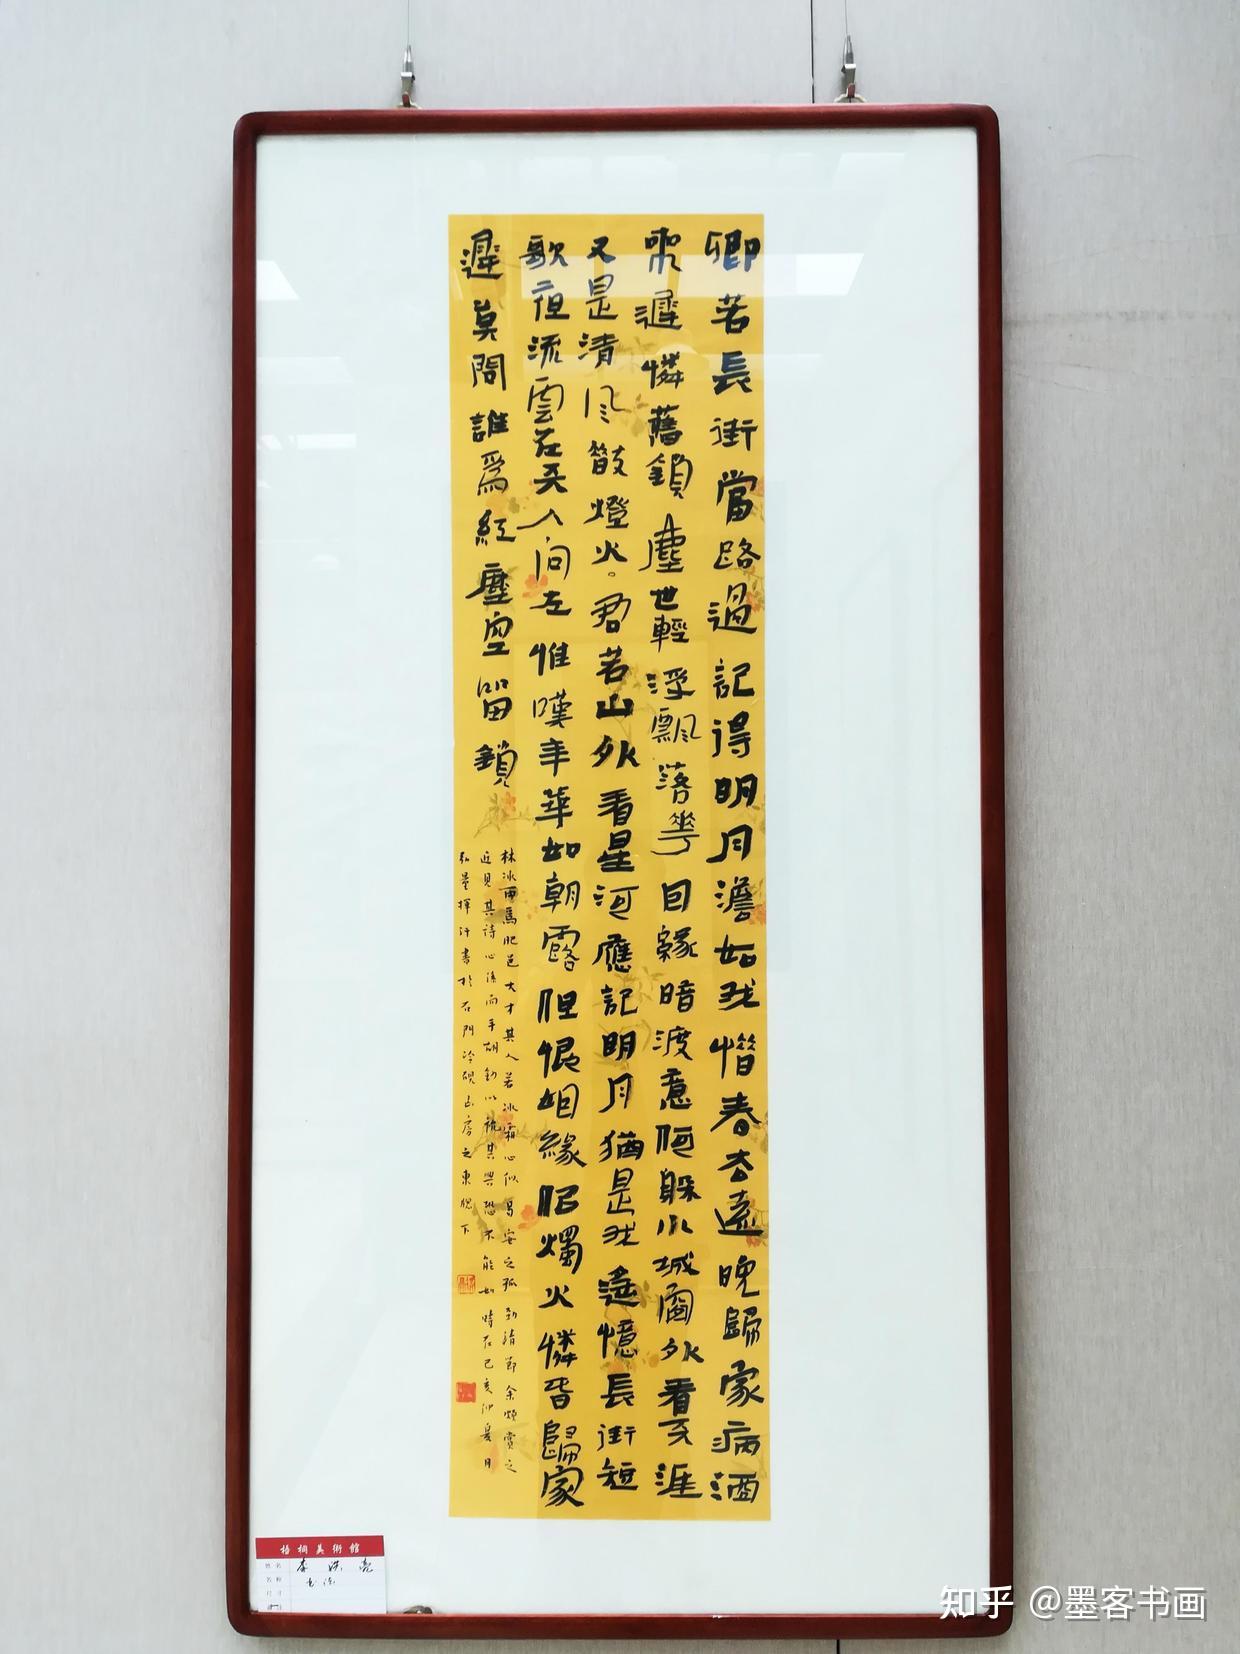 卿若長街當路過記得明月澹如我惜春去遠晚歸家病酒
眾遲憐舊鎖塵世輕浮飄落華因緣暗渡意阿躲小城窗外看天涯
又是清风散燈火。君若山外看星河應記明月猶是我遙憶長街短
歌夜流雲在天人向左惟嘆年華如朝露但恨姻緣似燭火憐昔歸家
遲莫問誰為紅塵空留鎖
林冰雨為肥邑大才其人若冰霜心似易安之孤勁清節余頗賞之
近見其詩心係而手胡動以觥其興恐不能如時在己亥仲夏月
弘量揮汗書於石門冷硯山房之東牕下
梧桐美術館
姓名 李洪亮
名称 书法
尺寸
知乎 @墨客书画